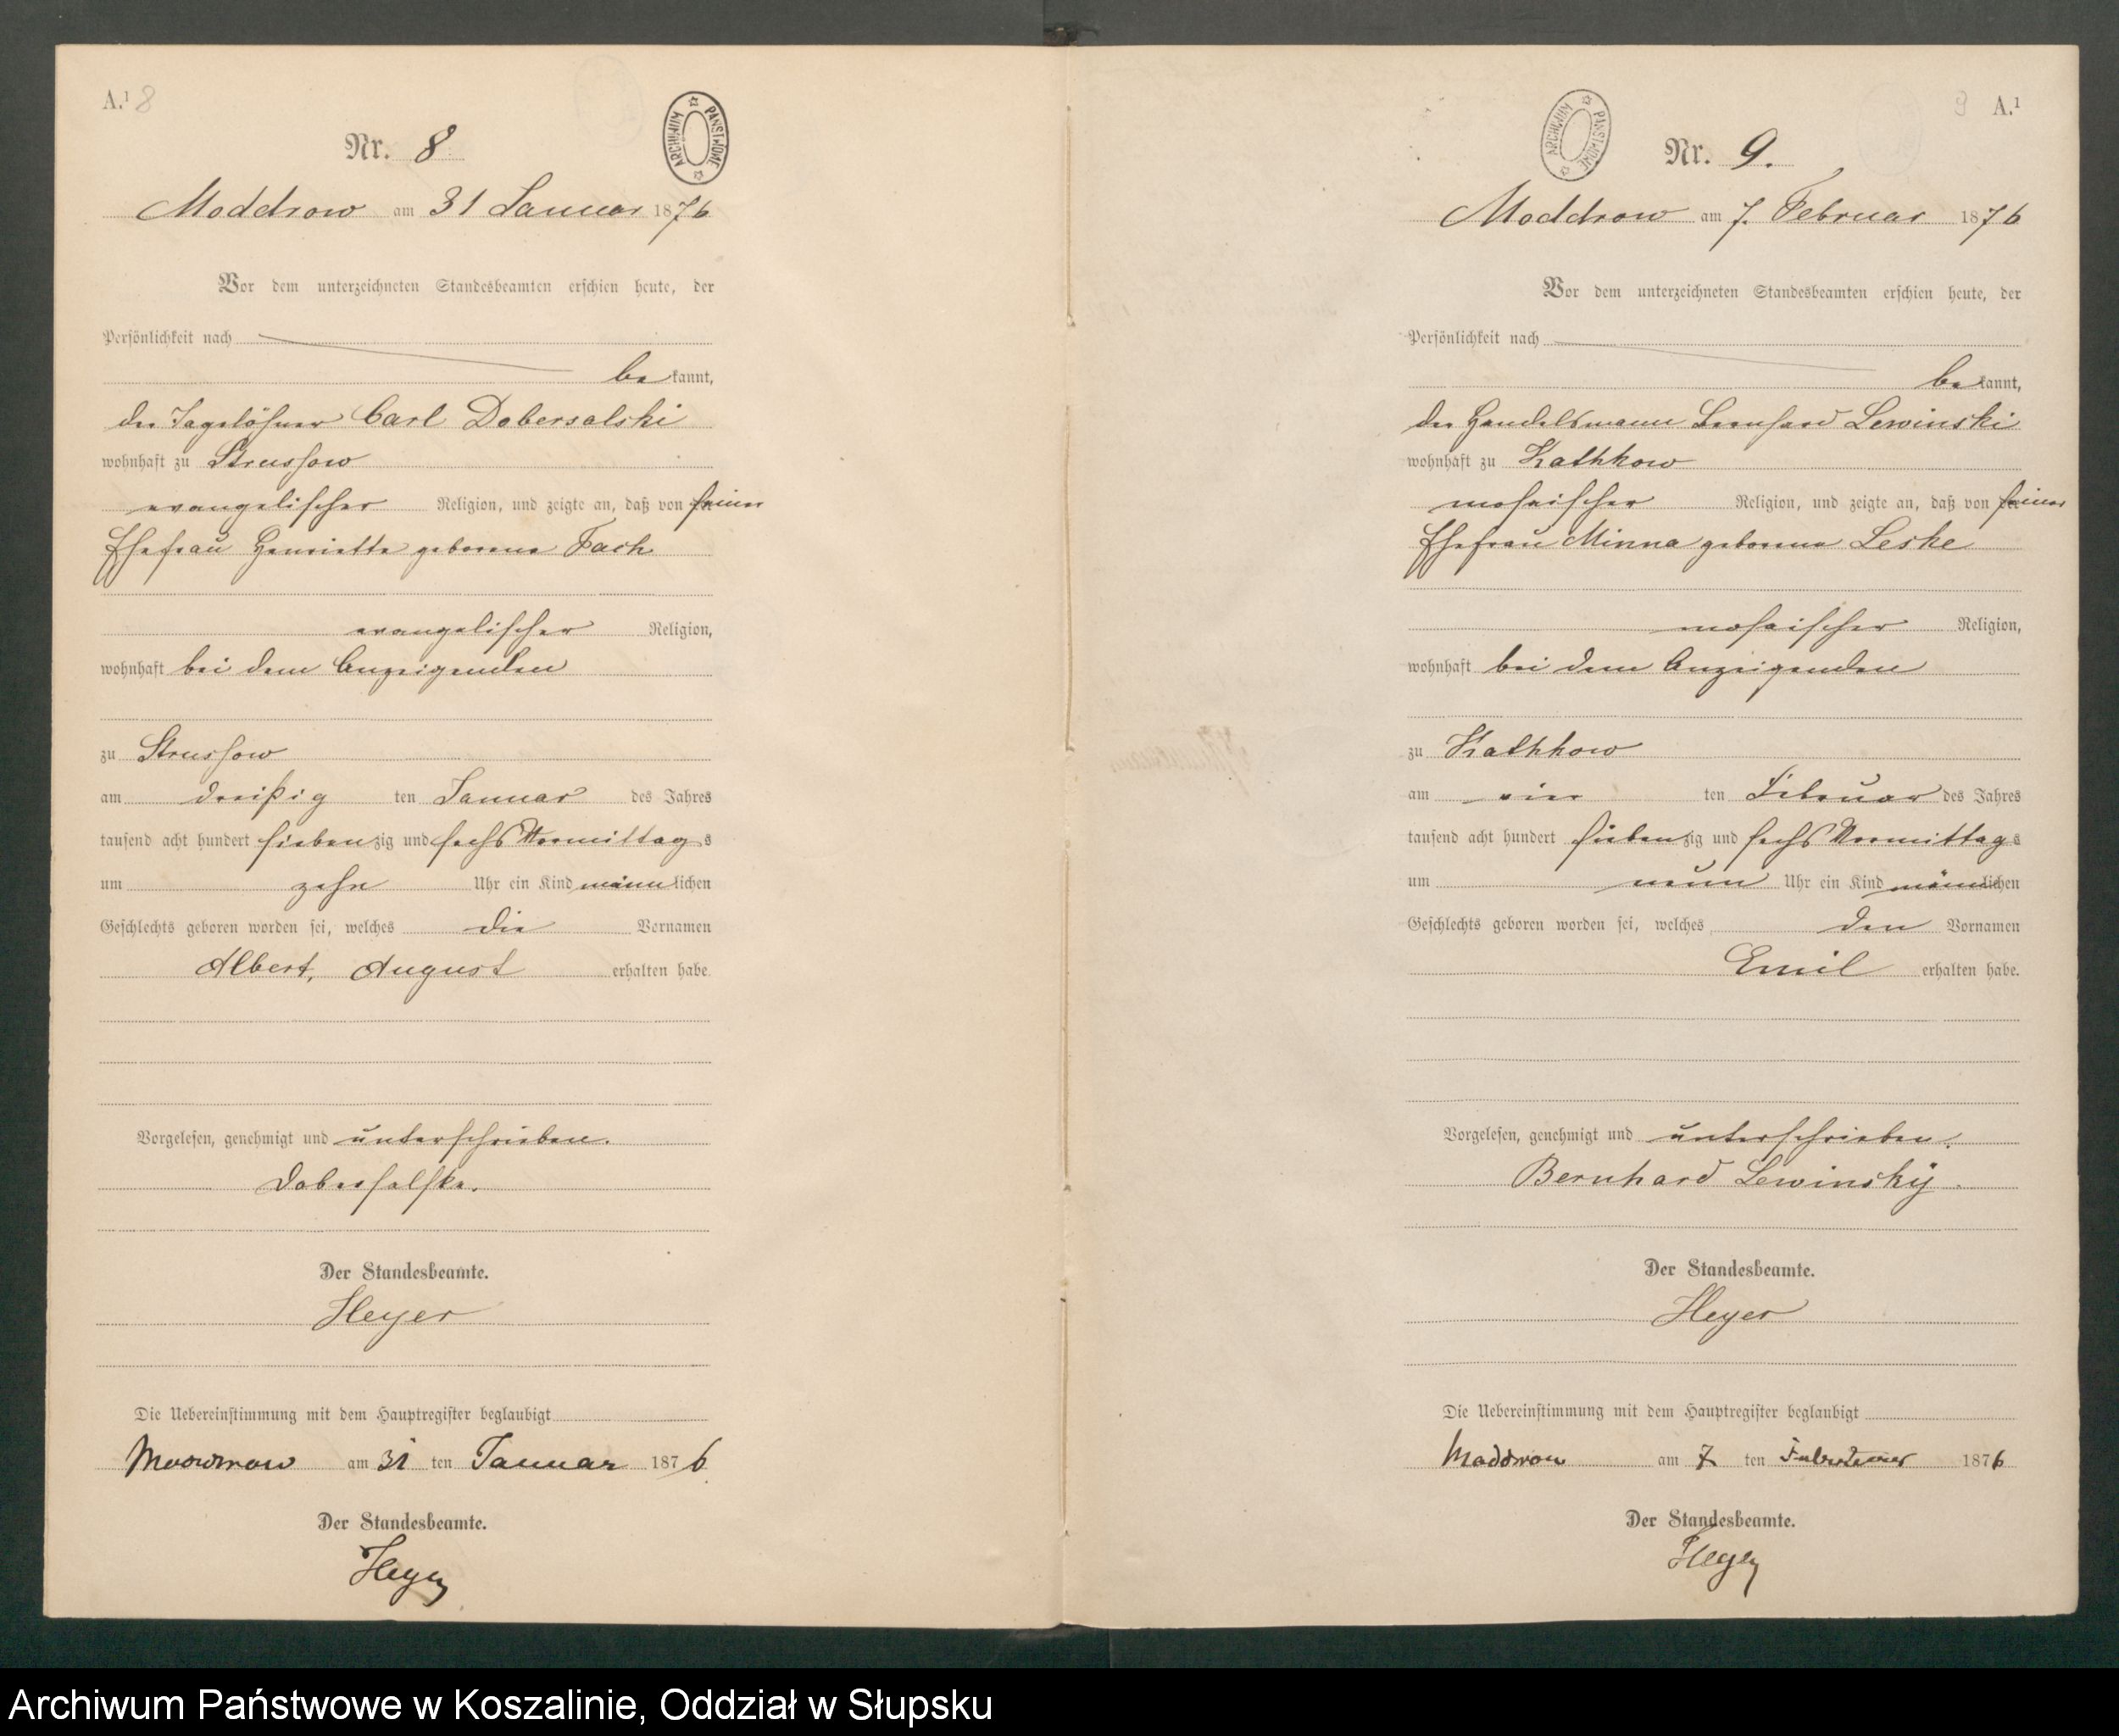 A.¹ 8
ARCHIWUM PAŃSTWOWE
Nr. 8
Moddrow am 31 Januar 1876
Vor dem unterzeichneten Standesbeamten erschien heute, der
Persönlichkeit nach
bekannt,
der Tagelöhner Carl Dobersalski
wohnhaft zu Strussow
evangelischer Religion, und zeigte an, daß von seiner
Ehefrau Henriette geborene Fach
evangelischer Religion,
wohnhaft bei dem Anzeigenden
zu Strussow
am dreißig ten Januar des Jahres
tausend acht hundert siebenzig und sechs Vormittags
um zehn Uhr ein Kind männlichen
Geschlechts geboren worden sei, welches die Vornamen
Albert, August erhalten habe.
Vorgelesen, genehmigt und unterschrieben.
Dobersalske.
Der Standesbeamte.
Heyer
Die Uebereinstimmung mit dem Hauptregister beglaubigt
Moddrow am 31 ten Januar 1876
Der Standesbeamte.
Heyer
9 A.¹
ARCHIWUM PAŃSTWOWE
Nr. 9.
Moddrow am 7. Februar 1876
Vor dem unterzeichneten Standesbeamten erschien heute, der
Persönlichkeit nach
bekannt,
der Handelsmann Bernhard Lewinski
wohnhaft zu Kathkow
mosaischer Religion, und zeigte an, daß von seiner
Ehefrau Minna geborene Leske
mosaischer Religion,
wohnhaft bei dem Anzeigenden
zu Kathkow
am vier ten Februar des Jahres
tausend acht hundert siebenzig und sechs Vormittags
um neun Uhr ein Kind männlichen
Geschlechts geboren worden sei, welches den Vornamen
Emil erhalten habe.
Vorgelesen, genehmigt und unterschrieben.
Bernhard Lewinsky.
Der Standesbeamte.
Heyer
Die Uebereinstimmung mit dem Hauptregister beglaubigt
Moddrow am 7 ten Februar 1876
Der Standesbeamte.
Heyer
Archiwum Państwowe w Koszalinie, Oddział w Słupsku